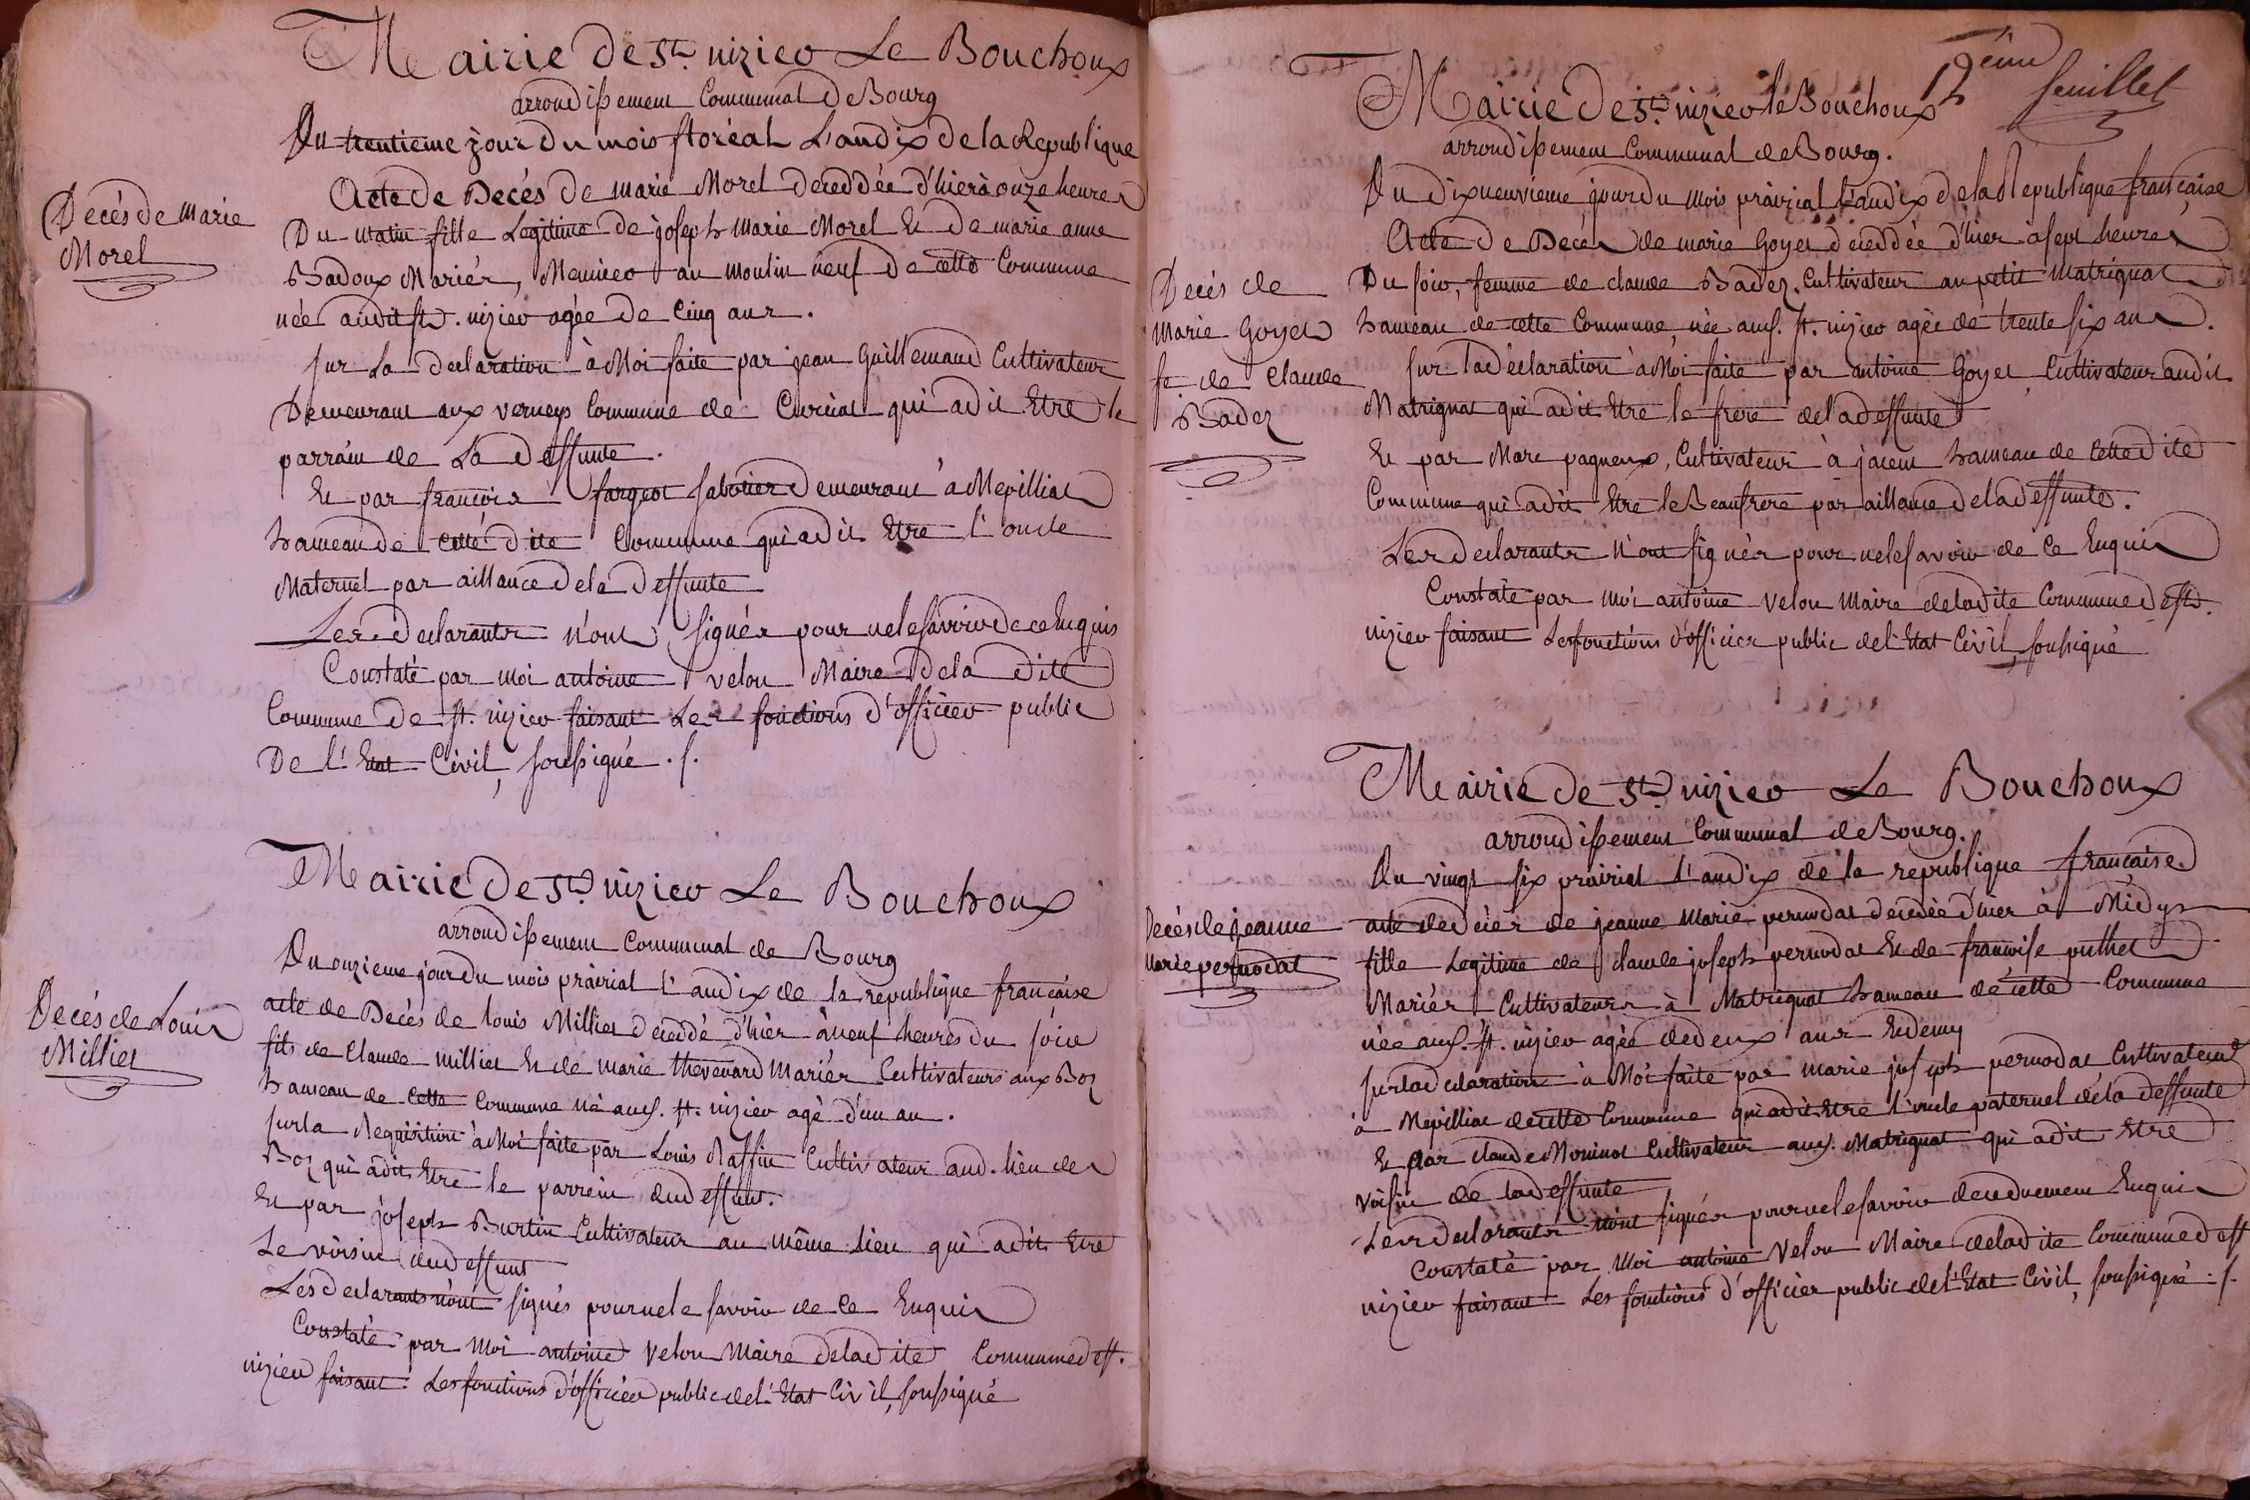 Mairie de St. nizier Le Bouchoux
arrondissement Communal de Bourg
Du trentieme jour du mois floréal L'an dix de la Republique
Decés de Marie
Morel
Acte de Decés de marie Morel deceddée d'hier à onze heures
Du matin fille Legitime de joseph Marie Morel Et de marie anne
Badoux Mariés, Meunier au moulin neuf de cette Commune
née audit st. nizier agée de Cinq ans.
sur La declaration à Moi faite par jean Guillemaud Cultivateur
Demeurant aux verneys Commune de Curciat qui a dit Etre le
parrain de La deffunte.
Et par françois fargeot sabotier Demeurant à Mepilliat
hameau de cette dite Commune qui a dit Etre l'oncle
Maternel par aillance de la deffunte
Les declarants N'ont signés pour ne le savoir de ce Enquis
Constaté par moi antoine velon Maire de la dite
Commune de st. nizier faisant Les fonctions d'officier public
De l'Etat Civil, soussigné ./.
Mairie de St. nizier Le Bouchoux
arrondissement Communal de Bourg
Du onzieme jour du mois prairial l'an dix de la republique française
Decés de Louis
Milliet
acte de Decés de louis Milliet deceddé d'hier à neuf heures du soir
fils de Claude milliet Et de marie thevenard Mariés Cultivateurs aux Boz
hameau de Cette Commune né aud. st. nizier agé d'un an.
sur la Requisition à Moi faite par Louis Raffin Cultivateur aud. lieu des
Boz qui a dit Etre le parrein dud deffunt.
Et par joseph Burtin Cultivateur au même lieu qui a dit Etre
Le voisin dud deffunt
Les declarants n'ont signés pour ne le savoir de Ce Enquis
Constaté par Moi antoine Velon Maire de la dite Commune de st.
nizier faisant Les fonctions d'officier public de l'Etat Civil, soussigné
12ème feuillet
Mairie de St. nizier le Bouchoux
arrondissement Communal de Bourg.
Du dix neuvieme jour du mois prairial L'an dix de la Republique française
Decés de
Marie Goyet
fe de Claude
Badez
Acte De Decés de marie Goyet deceddée d'hier à sept heures
Du soir, femme de claude Badez. Cultivateur au petit Matrignat
hameau de cette Commune, née aud. st. nizier agée de trente six ans.
sur la declaration à Moi faite par antoine Goyet Cultivateur audit
Matrignat qui a dit Etre le frere de la deffunte
Et par Marc pagneux, Cultivateur à jacem hameau de Cette dite
Commune qui a dit Etre le Beaufrere par aillance de la deffunte.
Les declarants N'ont signés pour ne le savoir de Ce Enquis
Constaté par moi antoine velon Maire de la dite Commune de st.
nizier faisant Les fonctions d'officier public de l'Etat Civil, soussigné
Mairie de St. nizier Le Bouchoux
arrondissement Communal de Bourg.
Du vingt six prairial l'an dix de la republique française
Decés de jeanne
Marie pernodat
acte de décès de jeanne Marie pernodat decedée d'hier à Midy
fille Legitime de Claude joseph pernodat Et de françoise puthet
Mariés Cultivateurs à Matrignat hameau de cette Commune
née aud. st. nizier agée de deux ans Et demy
sur la declaration à Moi faite par marie joseph pernodat Cultivateur
à Mepilliat de cette Commune qui a dit Etre l'oncle paternel de la deffunte
Et par claude Moninot Cultivateur aud. Matrignat qui a dit Etre
voisin de la deffunte
Les declarants n'ont signés pour ne le savoir de ce duement Enquis
Constaté par Moi antoine Velon Maire de la dite Commune de st
nizier faisant Les fonctions d'officier public de l'Etat Civil, soussigné ./.